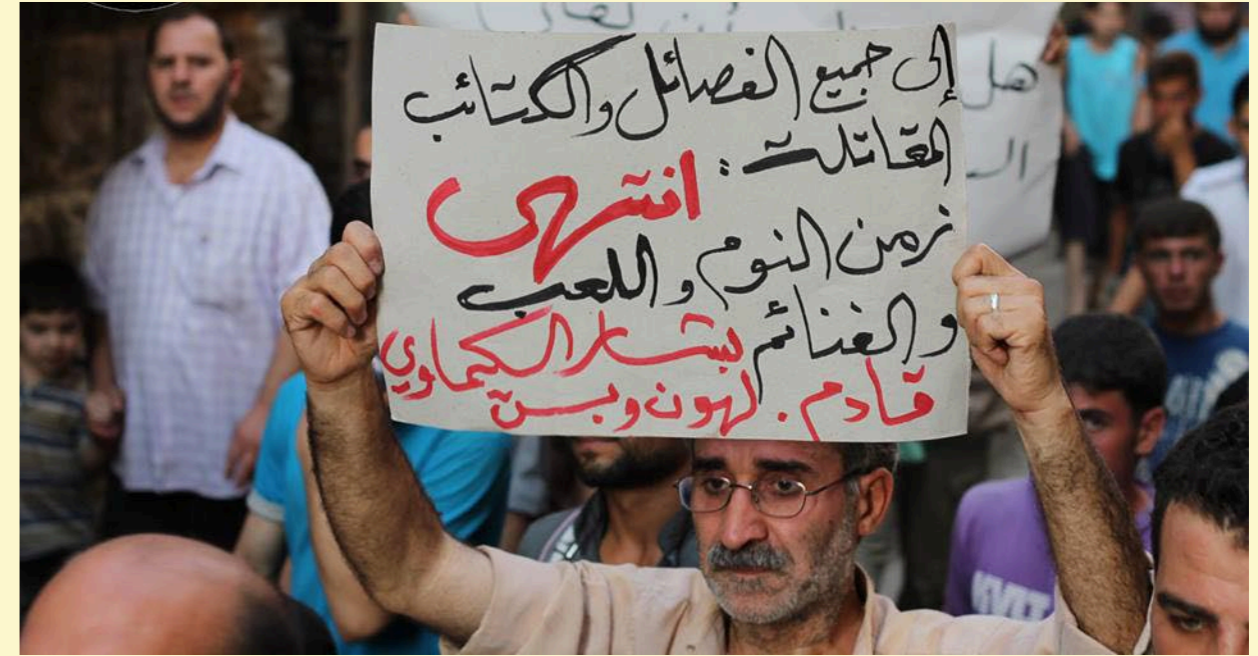 إلى جميع الفصائل والكتائب
المقاتلة : انتهى
زمن النوم واللعب
والغنائم بشار الكيماوي
قادم . لهون وبس
هل